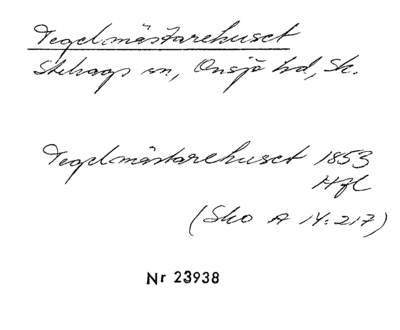 Tegelmästarehuset
Stehags sn, Onsjö hd, Sk.
Tegelmästarehuset 1853
Hfl
(Sko A 14:217)
Nr 23938